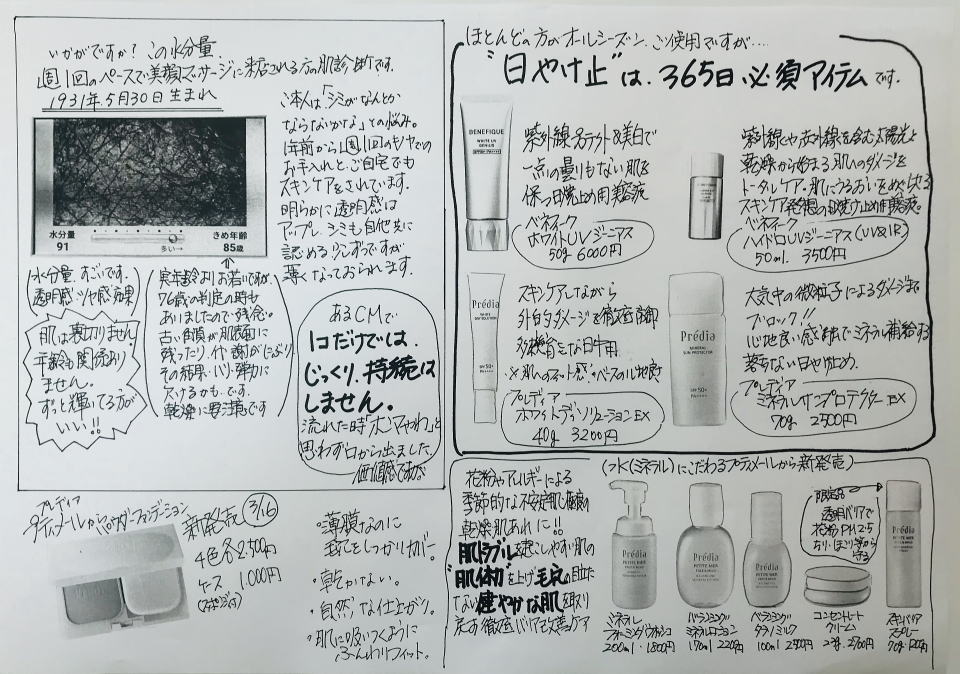 いかがですか？この水分量.
週1回のペースで美顔マッサージに来店される方の肌診断です.
1931年.5月30日生まれ
水分量
91
多い→
きめ年齢
85歳
ご本人は、「シミがなんとか
ならないかな」との悩み。
1年前から週1回のモノヤでの
お手入れと、ご自宅でも
スキンケアをされています.
明らかに透明感は
アップし、シミも自他共に
認める
薄くなっておられます.
水分量.すごいです.
透明感・ツヤ感効果
実年齢よりお若いですが、
76歳の判定の時も
ありましたので、残念。
古い角質が肌表面に
残ったり、代謝がにぶり
その結果、ハリ・弾力に
欠けるかも.です.
乾燥に要注意です
肌は裏切りません
年齢も関係あり
ません。
ずっと輝いてる方が
いい!!
あるCMで
1コだけでは、
じっくり、持続は
しません。
流れた時「ホンマやわ」と
思わず口から出ました.
価値感ですね
ほとんどの方がオールシーズン、ご使用ですが….
"日やけ止"は、365日、必須アイテムです.
BENEFIQUE
WHITE UV
GENIUS
紫外線カット&美白で
一点の曇りもない肌を
保つ日焼止め用美容液
ベネフィーク
ホワイトUVジーニアス
50g 6000円
紫外線や赤外線を含む太陽光と
乾燥から始まる肌へのダメージを
トータルケア.肌にうるおいをめぐらせる
スキンケア発想の日焼け止め用美容液。
ベネフィーク
ハイドロUVジーニアス(UV&IR)
50ml. 3500円
Prédia
WHITE
DAY SOLUTION
SPF50+
PA++++
スキンケアしながら
外的ダメージを徹底防御
多機能な日中用
※肌のフィット感・ベースの心地良
プレディア
ホワイトデイソリューションEX
40g 3200円
Prédia
MINERAL
SUN PROTECTOR
SPF50+
PA++++
大気中の微粒子によるダメージまで
ブロック!!
心地良い感触でミネラル補給する
落ちない日やけ止め.
プレディア
ミネラルサンプロテクターEX
70g 2500円
プレディア
プティメールからパウダーファンデーション
新発売 3/16
4色各2.500円
ケース 1.000円
(スポンジ付)
・薄膜なのに
段てをしっかりカバー
・乾かない。
・自然な仕上がり。
・肌に吸いつくように
ふんわりフィット。
花粉やアレルギーによる
季節的な不安定肌・敏感の
乾燥肌あれに!!
肌トラブルを起こしやすい肌の
"肌体力"を上げ、毛穴の目立た
ない健やかな肌を取り
戻す徹底バリア改善ケア
(水(ミネラル)にこだわるプティメールから新発売)
限定品
透明バリアで
花粉・PM2.5
ちり・ほこり等から
守る
Prédia
PETITE MER
Prédia
PETITE MER
Prédia
PETITE MER
ミネラル
フォーミングウォッシュ
200ml・1800円
バランシング
ミネラルローション
170ml 2200円
バランシング
ミルク
100ml 2500円
コンセントレート
クリーム
2700円
スキンバリア
スプレー
70g・1200円